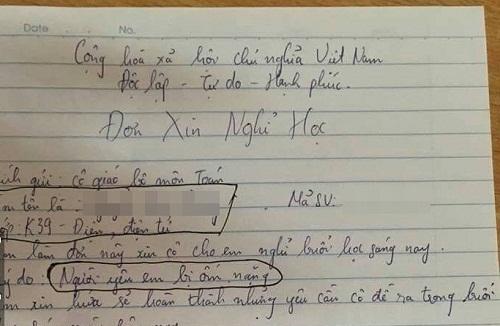 Date No.
Cộng hoà xã hội chủ nghĩa Việt Nam
Độc lập - Tự do - Hạnh phúc.
Đơn Xin Nghỉ Học
ính gửi: cô giáo bộ môn Toán
m tên là: Mã SV:
ớp: K39 - Điện, điện tử
m làm đơn này xin cô cho em nghỉ buổi học sáng nay.
ý do: Người yêu em bị ốm nặng
m xin hứa sẽ hoàn thành những yêu cầu cô đề ra trong buổi